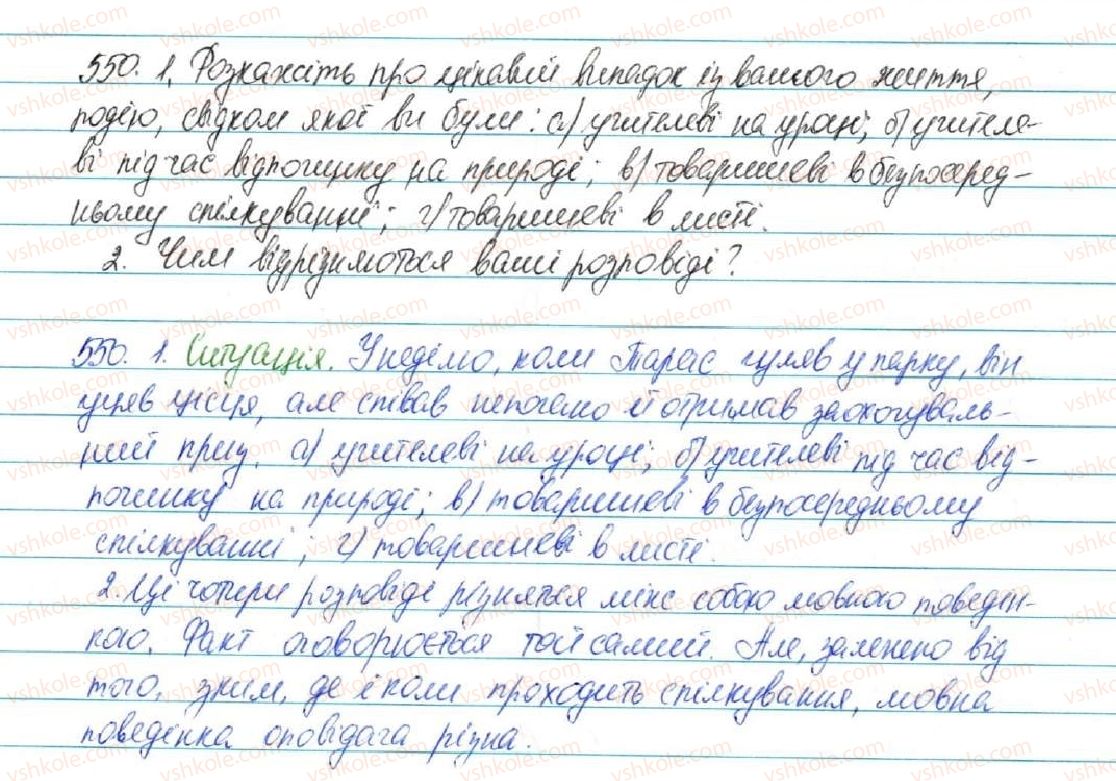 550. 1. Розкажіть про цікавий випадок із вашого життя,
подію, свідком якої ви були: а) учителеві на уроці; б) учителе-
ві під час відпочинку на природі; в) товаришеві в безпосеред-
ньому спілкуванні; г) товаришеві в листі.
2. Чим відрізнятимуться ваші розповіді?
550. 1. Ситуація. У неділю, коли Тарас гуляв у парку, він
але співав непогано й отримав заохочуваль-
ний приз. а) учителеві на уроці; б) учителеві під час від-
починку на природі; в) товаришеві в безпосередньому
спілкуванні; г) товаришеві в листі.
2. Ці чотири розповіді різняться між собою мовною поведін-
кою. Факт оговорюється той самий. Але, залежно від
того, з ким, де і коли проходить спілкування, мовна
поведінка оповідача різна.
vshkole.com